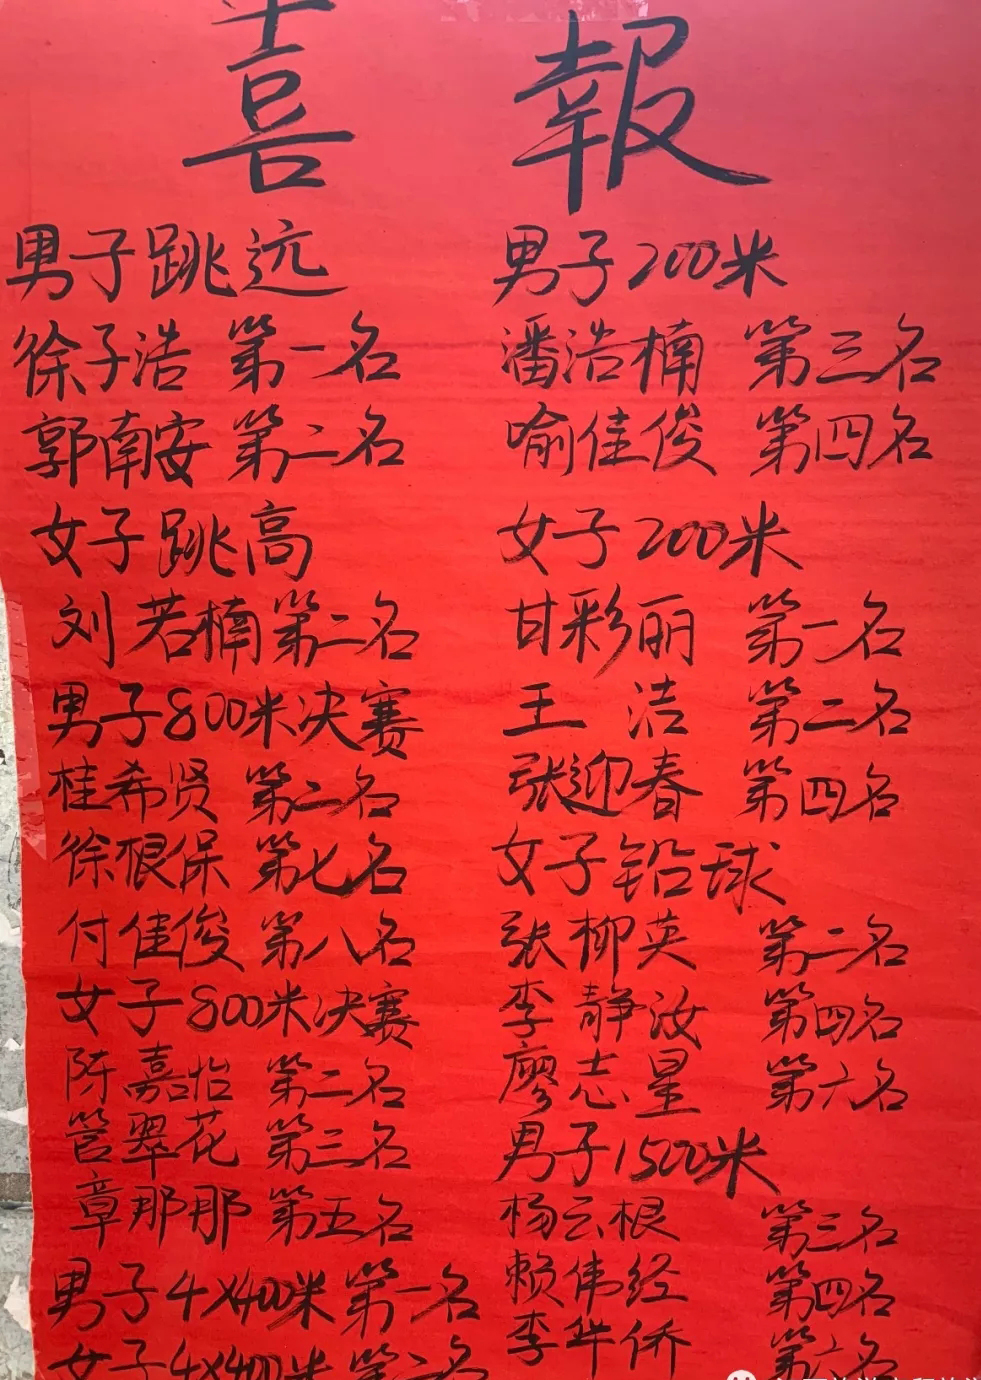 喜報
男子跳远
徐子浩 第一名
郭南安 第二名
女子跳高
刘若楠 第二名
男子800米决赛
桂希贤 第二名
徐根保 第七名
付佳俊 第八名
女子800米决赛
陈嘉怡 第二名
管翠花 第三名
章那那 第五名
男子4×400米 第一名
女子4×400米 第二名
男子200米
潘浩楠 第三名
喻佳俊 第四名
女子200米
甘彩丽 第一名
王 洁 第二名
张迎春 第四名
女子铅球
张柳英 第二名
李静汝 第四名
廖志星 第六名
男子1500米
杨云根 第三名
赖伟经 第四名
李 侨 第六名